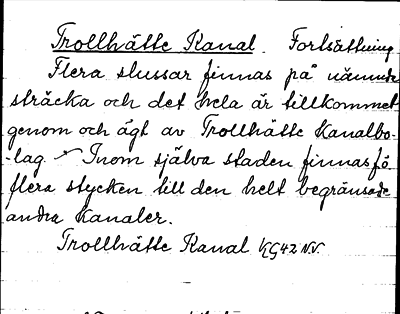 Trollhätte Kanal. Fortsättning
Flera slussar finnas på nämnda
sträcka och det hela är tillkommet
genom och ägt av Trollhätte Kanalbo-
-lag. - Inom själva staden finnas fö
flera stycken till den helt begränsade
andra Kanaler.
Trollhätte Kanal KG42 N.V.